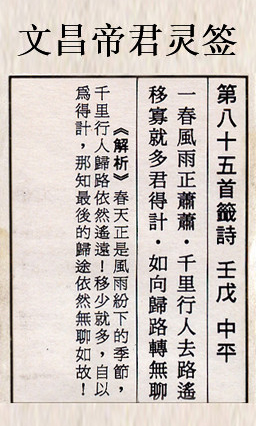 文昌帝君灵签
第八十五首籤詩 壬戊 中平
一春風雨正蕭蕭·千里行人去路遙
移寡就多君得計·如向歸路轉無聊
《解析》春天正是風雨紛下的季節，
千里行人歸路依然遙遠！移少就多，自以
為得計，那知最後的歸途依然無聊如故！